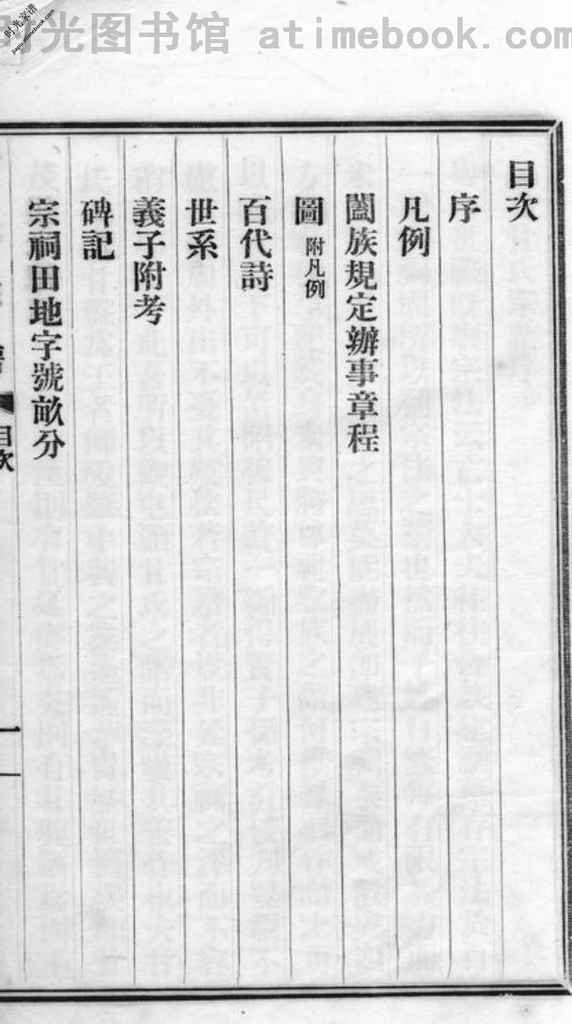 时光图书馆 atimebook.com
目次
序
凡例
闔族規定辦事章程
圖 附凡例
百代詩
世系
義子附考
碑記
宗祠田地字號畝分
目次
一